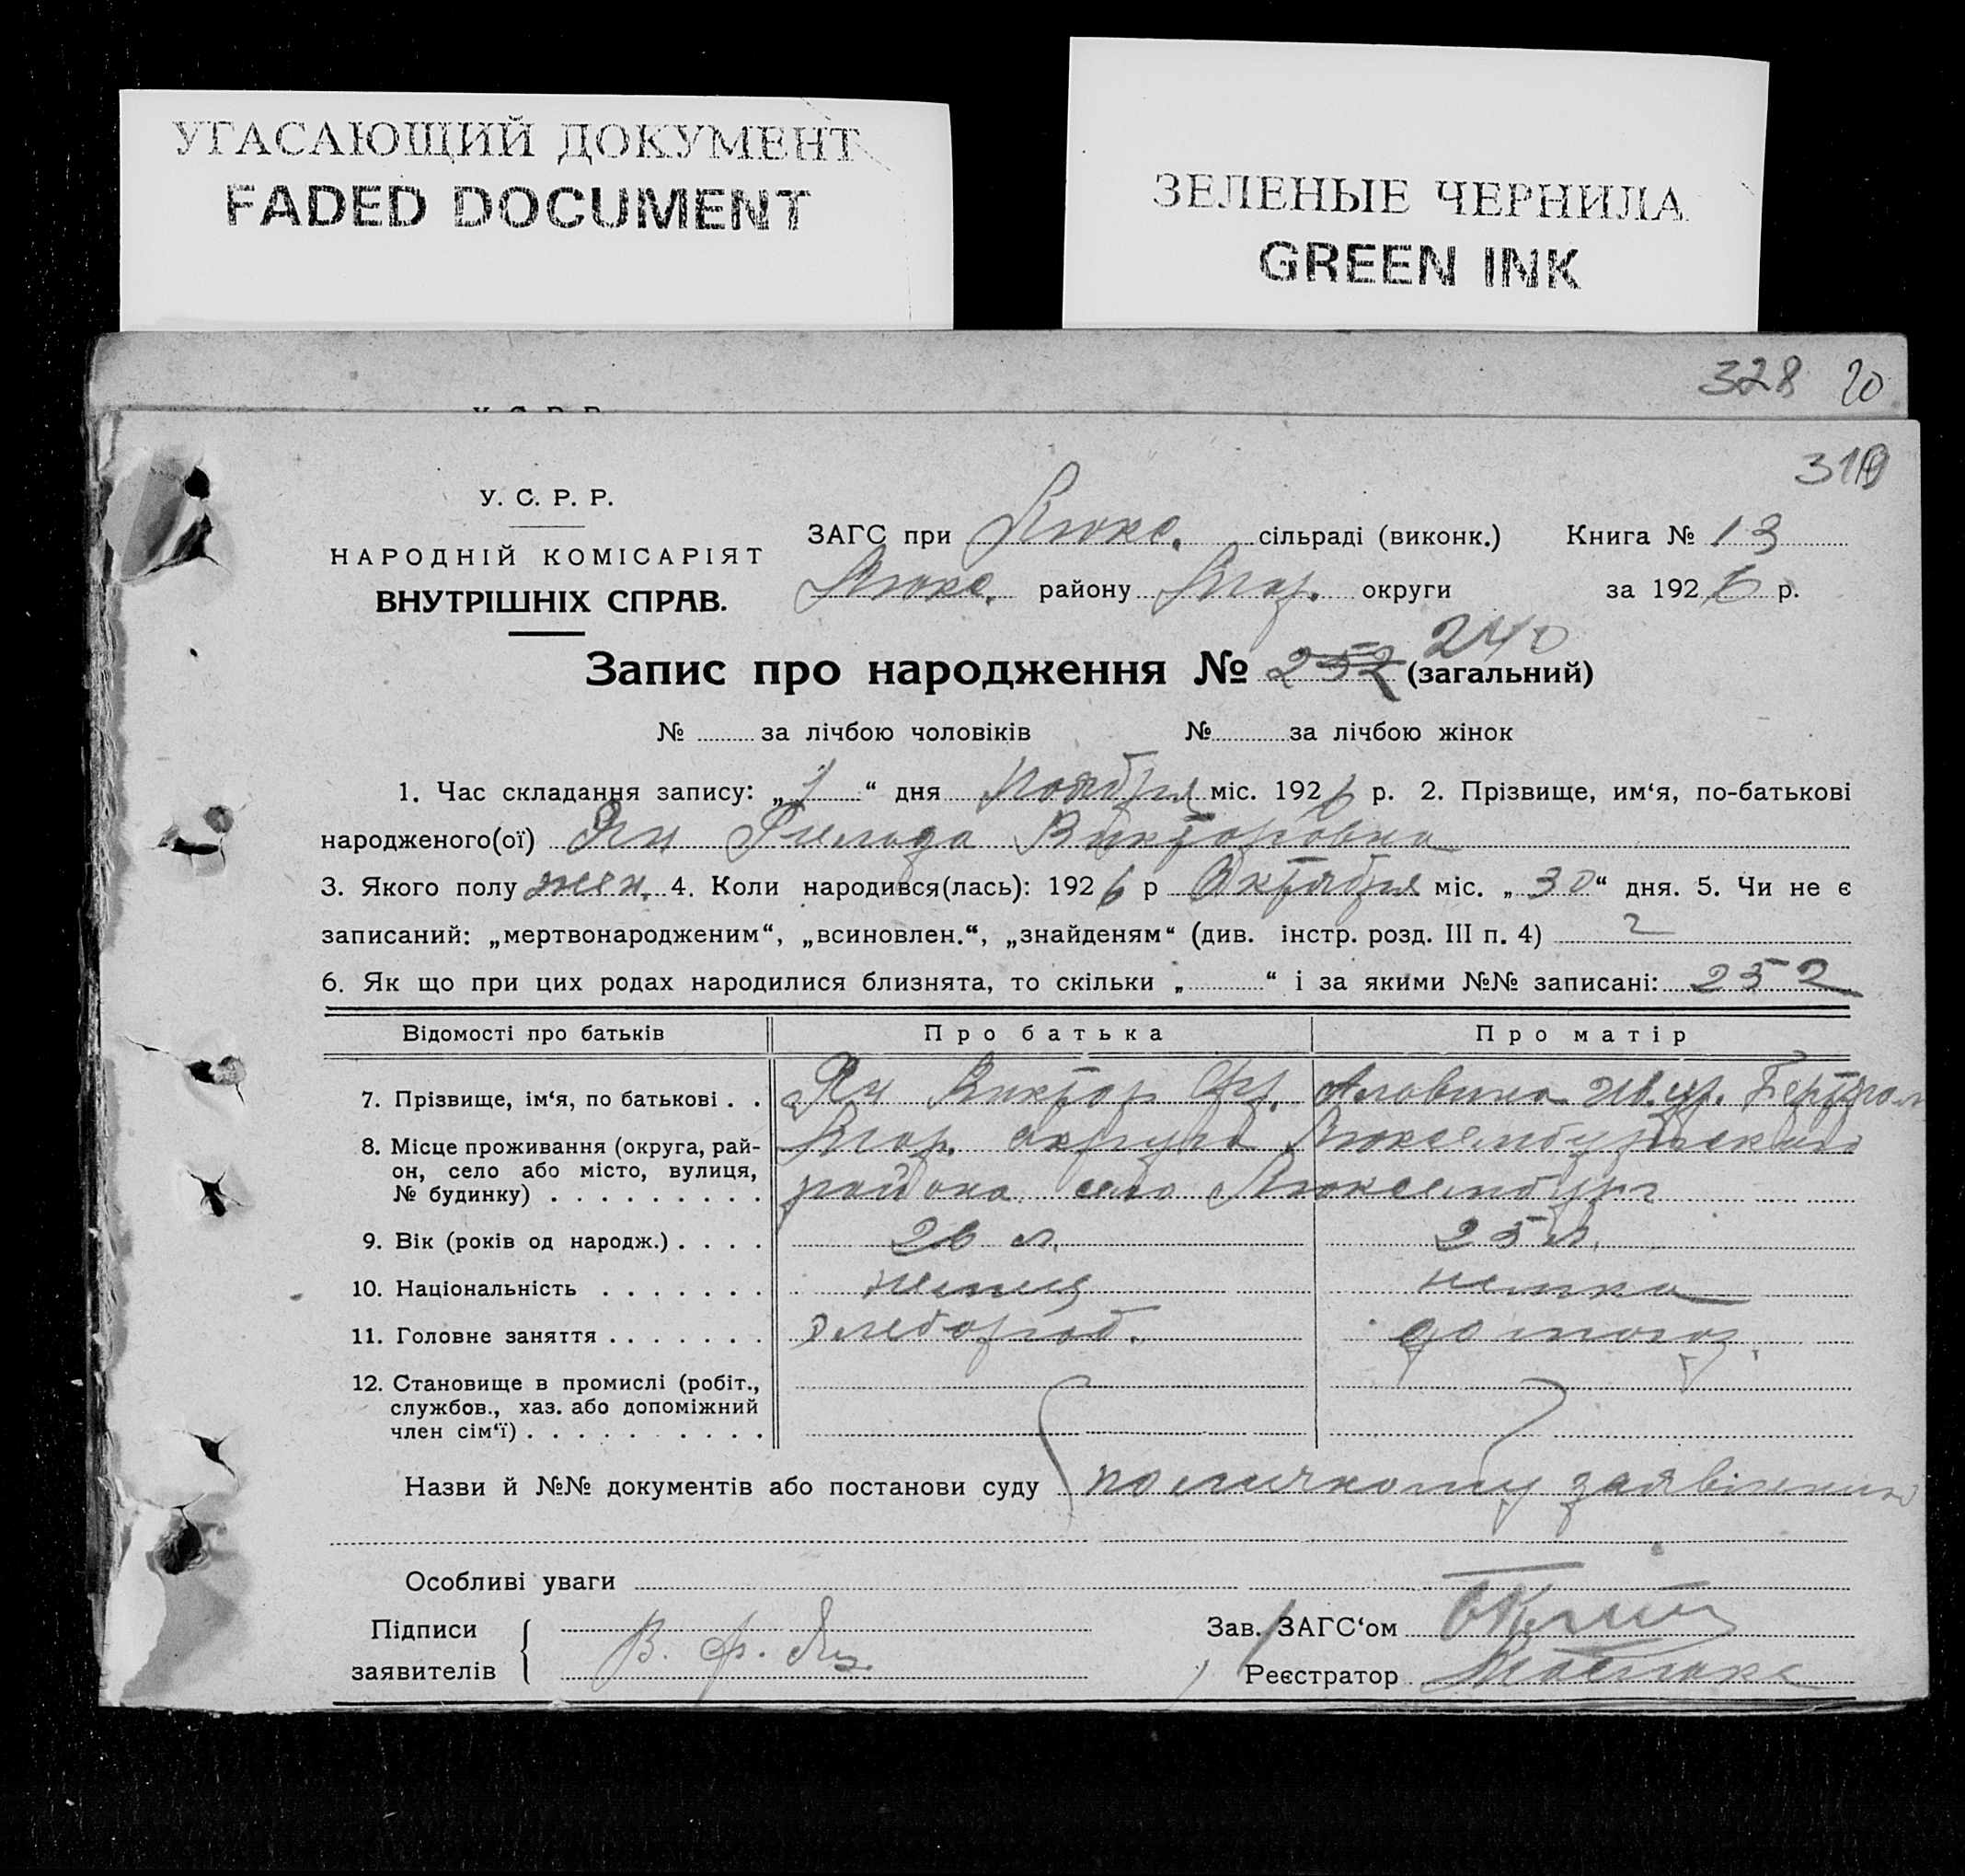 УГАСАЮЩИЙ ДОКУМЕНТ
FADED DOCUMENT
ЗЕЛЕНЫЕ ЧЕРНИЛА
GREEN INK
328 20
319
У. С. Р. Р.
НАРОДНІЙ КОМІСАРІЯТ
ВНУТРІШНІХ СПРАВ.
ЗАГС при Люкс. сільраді (виконк.) Книга № 13
Люкс. району Мар. округи за 1926 р.
Запис про народження № 252 240 (загальний)
№ за лічбою чоловіків № за лічбою жінок
1. Час складання запису: „1“ дня Ноября міс. 1926 р. 2. Прізвище, им‘я, по-батькові
народженого(ої) Ян Викторовна
3. Якого полу жен. 4. Коли народився(лась): 1926 р Октября міс. „30“ дня. 5. Чи не є
записаний: „мертвонародженим“, „всиновлен.“, „знайденям“ (див. інстр. розд. III п. 4)
6. Як що при цих родах народилися близнята, то скільки „ “ і за якими №№ записані: 252
Відомості про батьків Про батька Про матір
7. Прізвище, ім‘я, по батькові . . Ян Виктор
8. Місце проживання (округа, рай- Мар. округа Люксембургского
он, село або місто, вулиця, района село Люксембург
№ будинку)
9. Вік (років од народж.) . . . . 26 л. 25 л.
10. Національність немец немка
11. Головне заняття хлебороб. домохоз.
12. Становище в промислі (робіт.,
службов., хаз. або допоміжний
член сім‘ї)
Назви й №№ документів або постанови суду по личному заявлению
Особливі уваги
Підписи
заявителів { В. Ф. Ян
Зав. ЗАГС‘ом
Реєстратор